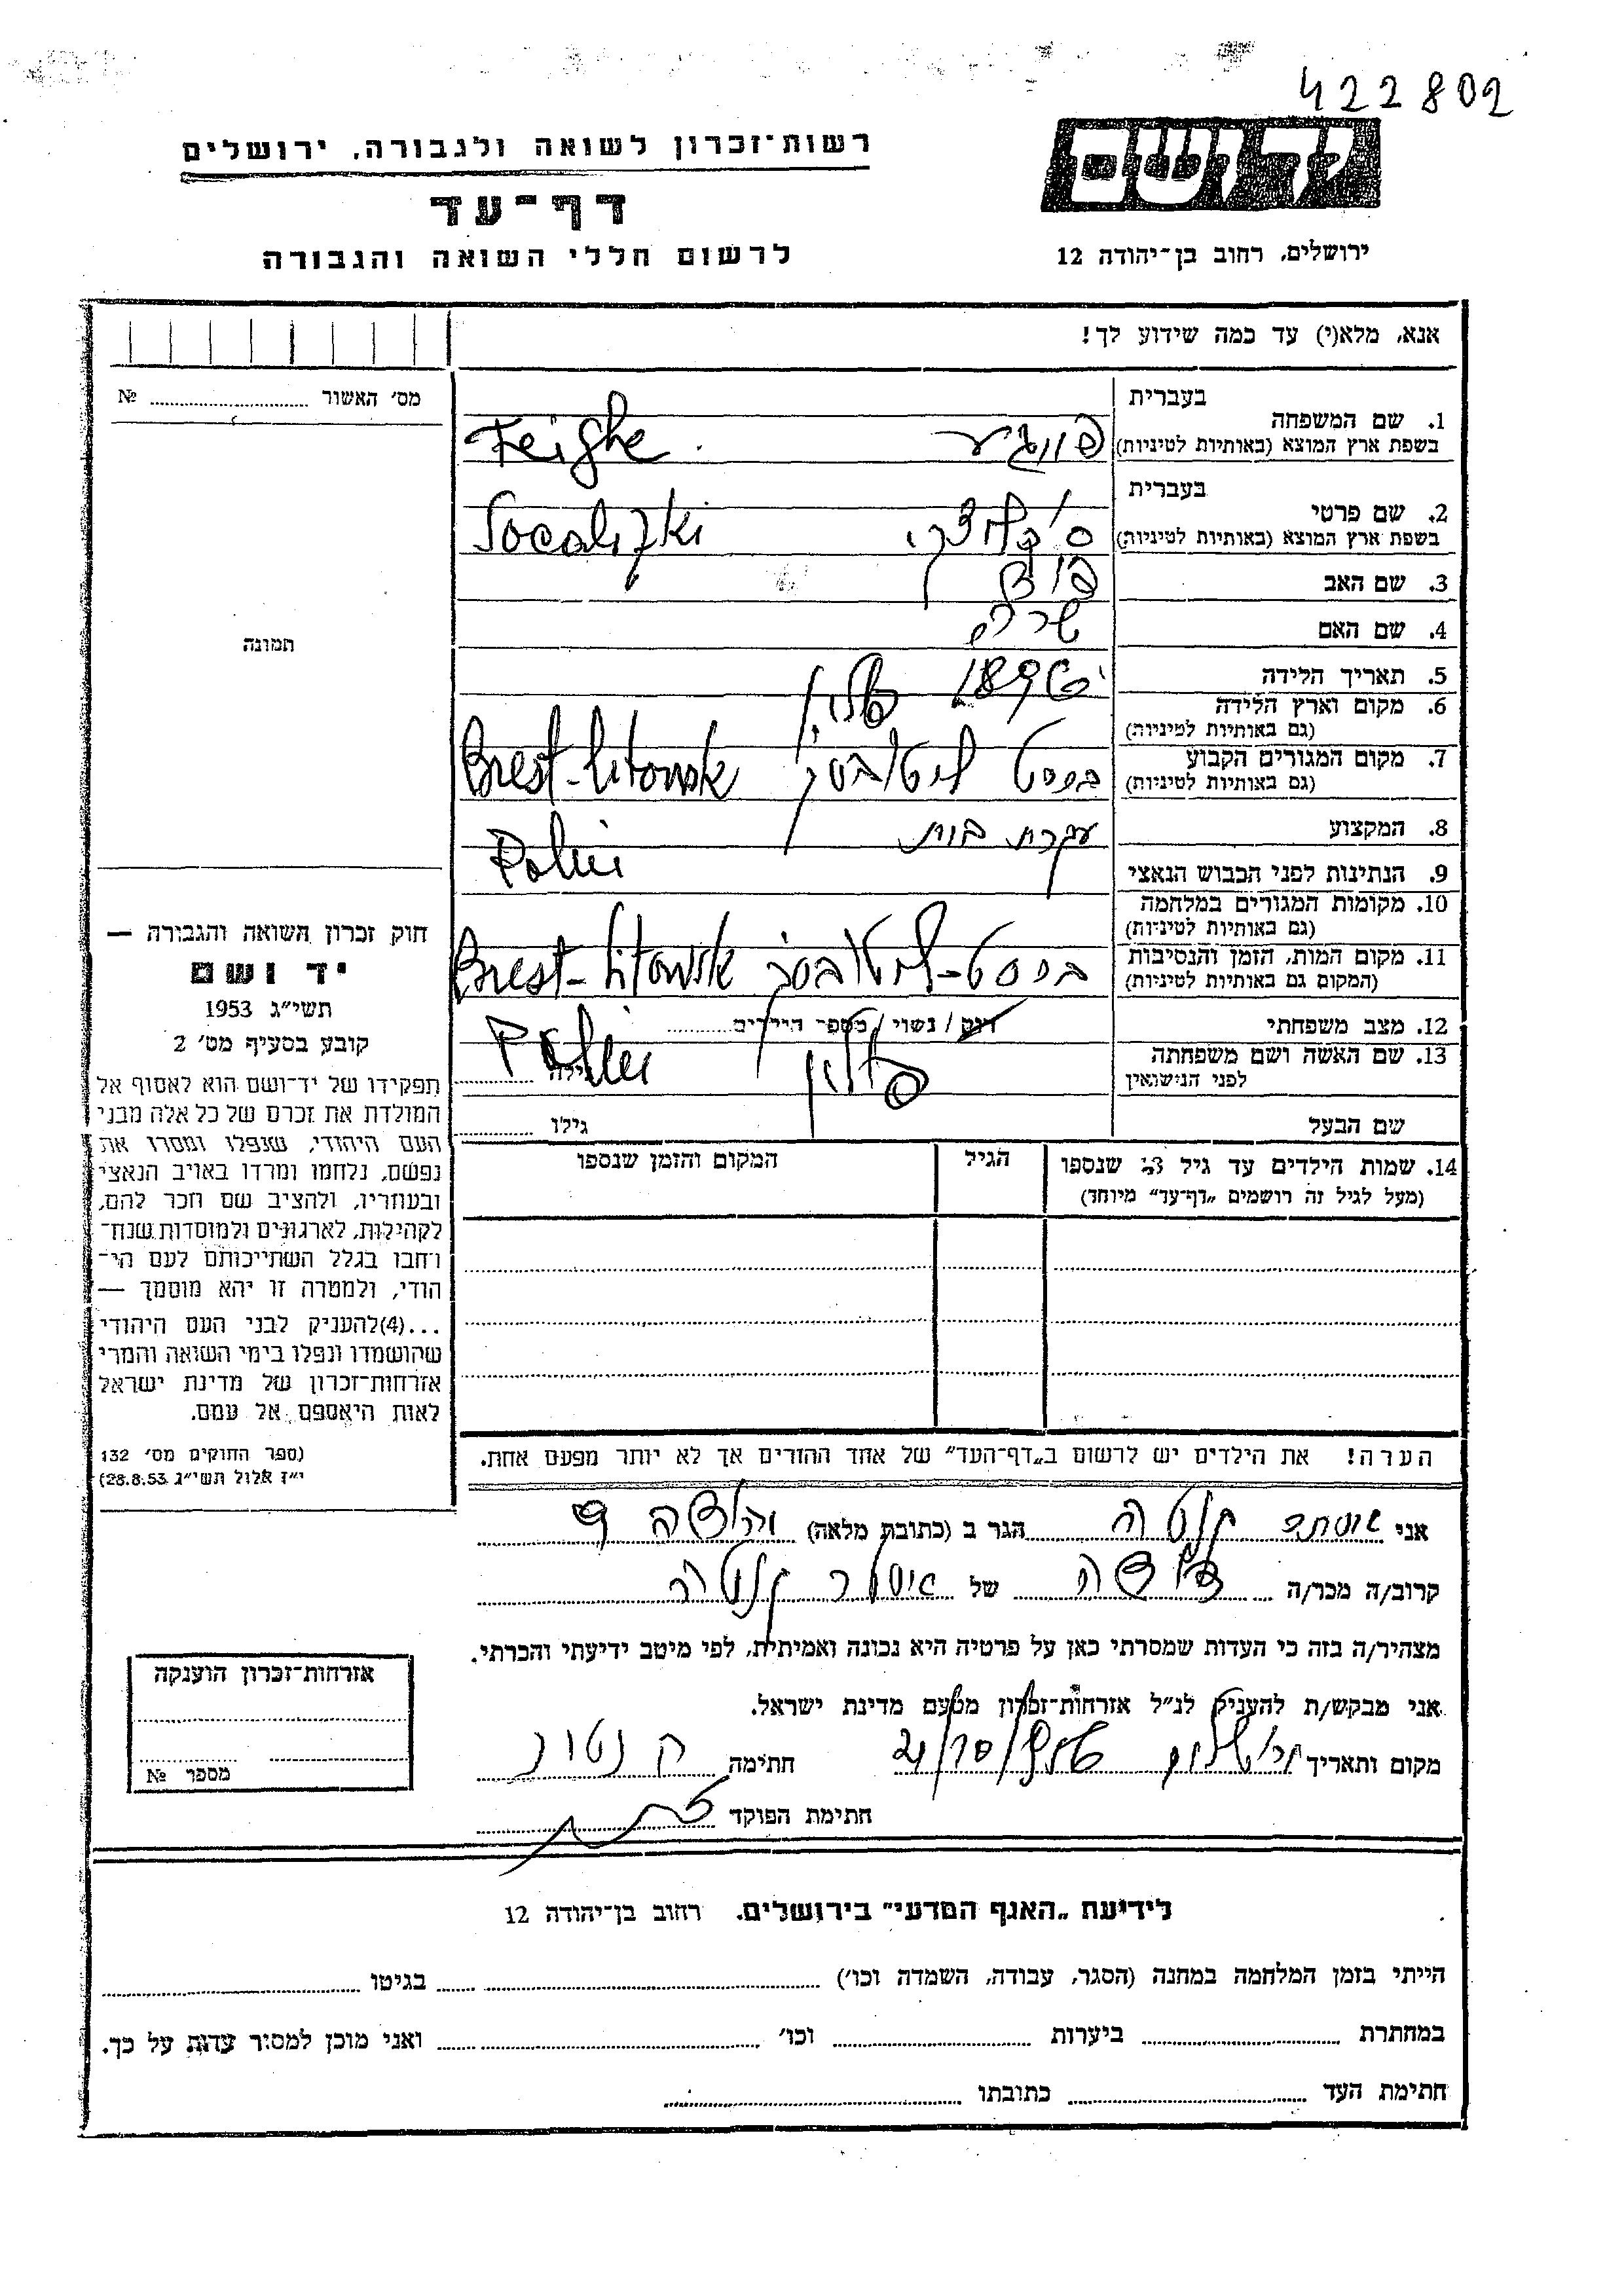 422802
רשות־זכרון לשואה ולגבורה, ירושלים
יד ושם
דף־עד
לרשום חללי השואה והגבורה
ירושלים, רחוב בן־יהודה 12
אנא, מלא(י) עד כמה שידוע לך!
מס׳ האשור ........ №
תמונה
1. שם המשפחה
בעברית
בשפת ארץ המוצא (באותיות לטיניות)
פייגע Feighe
2. שם פרטי
בעברית
בשפת ארץ המוצא (באותיות לטיניות)
3. שם האב
4. שם האם
שרה
5. תאריך הלידה
6. מקום וארץ הלידה
(גם באותיות לטיניות)
פולין
7. מקום המגורים הקבוע
(גם באותיות לטיניות)
בריסט ליטובסק Brest-Litowsk
8. המקצוע
עקרת בית
9. הנתינות לפני הכבוש הנאצי
10. מקומות המגורים במלחמה
(גם באותיות לטיניות)
11. מקום המות, הזמן והנסיבות
(המקום גם באותיות לטיניות)
בריסט-ליטובסק Brest-Litowsk
12. מצב משפחתי
רווק / נשוי / מספר הילדים........
13. שם האשה ושם משפחתה
לפני הנישואין
גילה ........
פולין
שם הבעל
גילו ........
14. שמות הילדים עד גיל 18 שנספו
(מעל לגיל זה רושמים „דף־עד” מיוחד)
הגיל
המקום והזמן שנספו
הערה! את הילדים יש לרשום ב„דף־העד” של אחד ההורים אך לא יותר מפעם אחת.
חוק זכרון השואה והגבורה —
יד ושם
תשי״ג 1953
קובע בסעיף מס׳ 2
תפקידו של יד־ושם הוא לאסוף אל
המולדת את זכרם של כל אלה מבני
העם היהודי, שנפלו ומסרו את
נפשם, נלחמו ומרדו באויב הנאצי
ובעוזריו, ולהציב שם וזכר להם,
לקהילות, לארגונים ולמוסדות שנח־
רחבו בגלל השתייכותם לעם הי־
הודי, ולמטרה זו יהא מוסמך —
...(4)להעניק לבני העם היהודי
שהושמדו ונפלו בימי השואה והמרי
אזרחות־זכרון של מדינת ישראל
לאות היאספם אל עמם.
(ספר החוקים מס׳ 132
י״ז אלול תשי״ג 28.8.53)
אני אסתר הגר ב (כתובת מלאה)
קרוב/ה מכר/ה של אסתר
מצהיר/ה בזה כי העדות שמסרתי כאן על פרטיה היא נכונה ואמיתית, לפי מיטב ידיעתי והכרתי.
אני מבקש/ת להעניק לנ״ל אזרחות־זכרון מטעם מדינת ישראל.
מקום ותאריך ירושלים חתימה
חתימת הפוקד
אזרחות־זכרון הוענקה
מספר №
לידיעת „האגף המדעי” בירושלים. רחוב בן־יהודה 12
הייתי בזמן המלחמה במחנה (הסגר, עבודה, השמדה וכו׳) ........ בגיטו ........
במחתרת ........ ביערות ........ וכו׳ ........ ואני מוכן למסור עדות על כך.
חתימת העד ........ כתובתו ........